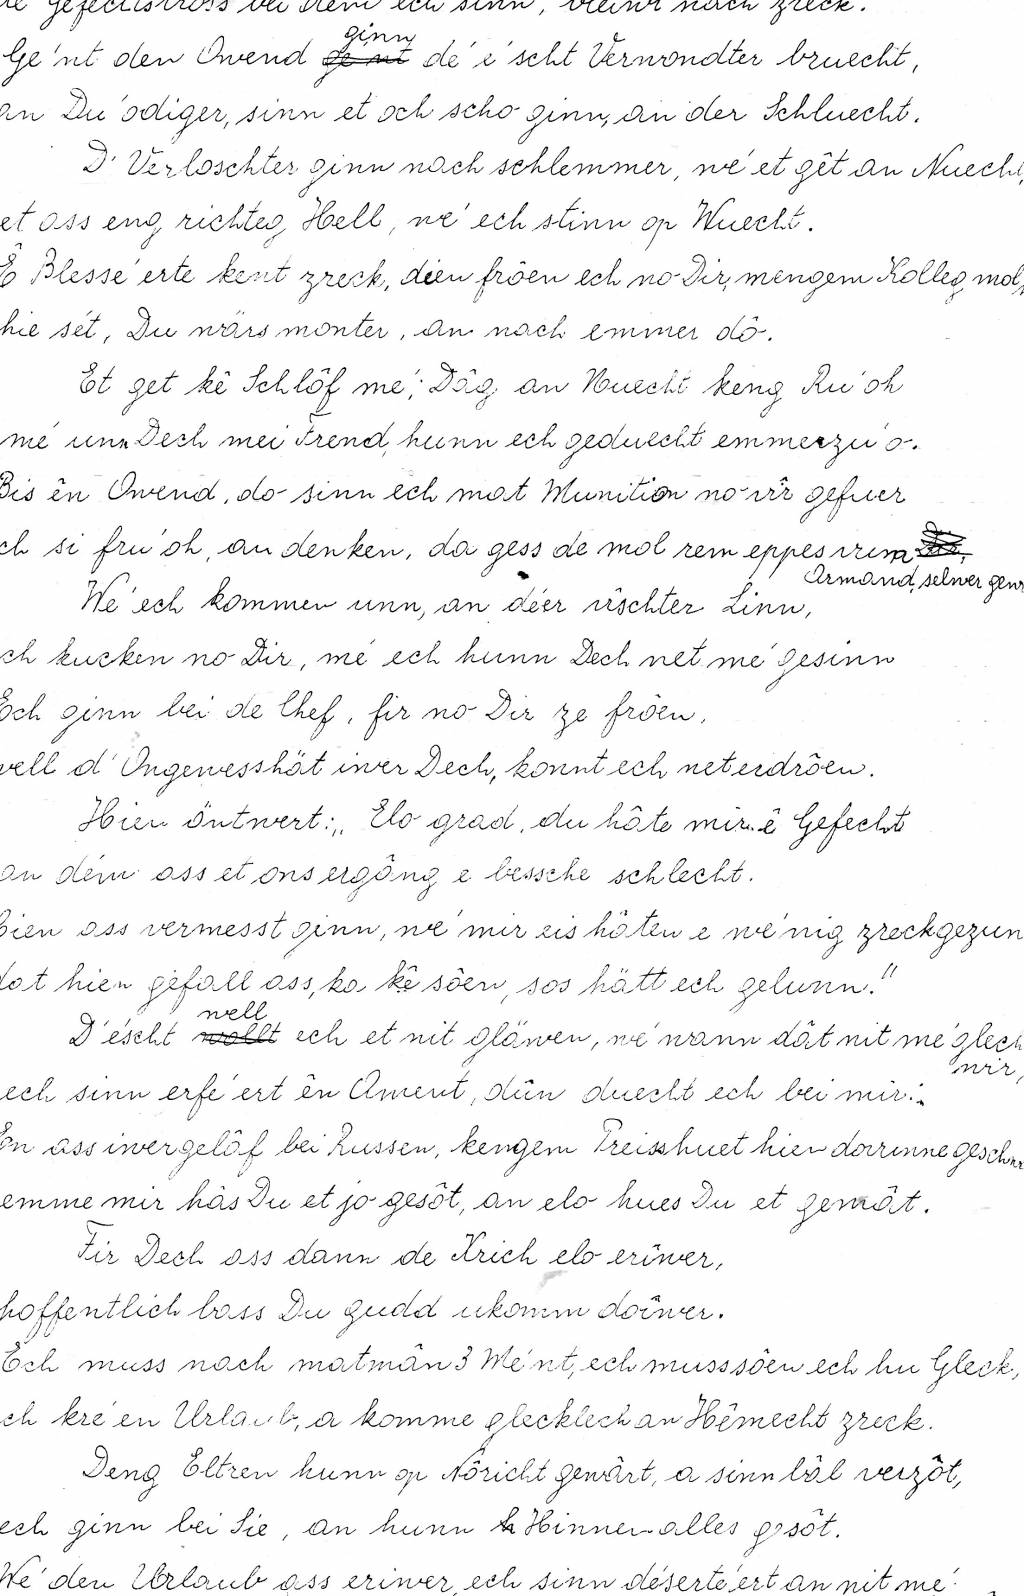 Gefechtstross bei dem ech sinn, bleiwt nach zreck.
ginn
Ge'nt den Owend ge'nt dé é'scht Verwondter bruecht,
an Du'ödiger, sinn et och scho ginn, an der Schluecht.
D'Verloschter ginn nach schlemmer, wé et gêt an Nuecht,
et ass eng richteg Hell, wé ech stinn op Wuecht.
Ê Blessé'erte kent zreck, dien frôen ech no Dir, mengem Kolleg mol,
hie sét, Du wärs monter, an nach emmer dô.
Et get kê Schlôf mé, Dâg an Nuecht keng Ru'oh
mé unn Dech mei Frend, hunn ech geduecht emmerzu'o.
Bis ên Owend, do sinn ech mat Munition no vir gefuer
ech si fru'oh, an denken, da gess de mol rem eppes vum Dir,
Armand, selwer
We'ech kommen unn, an déer vischter Linn,
ech kucken no Dir, mé ech hunn Dech net mé gesinn
Ech ginn bei de Chef, fir no Dir ze frôen,
well d'Ongewesshät iwer Dech, konnt ech net erdrôen.
Hien äntwert: „Elo grad, du hâte mir ê Gefecht
an dém ass et ons ergâng e bessche schlecht.
Hien ass vermesst ginn, wé mir eis hâten e wé'nig zreckgezun
dat hien gefall ass, ka kê sôen, sos hätt ech gelunn."
well
D'éscht wollt ech et nit gläwen, wé wann dât nit mé glech
wir,
ech sinn erfé'ert ên Ament, dûn duecht ech bei mir:
En ass iwergelâf bei Russen, kengem Preisshuet hien dorënne
emme mir hâs Du et jo gesôt, an elo hues Du et gemât.
Fir Dech ass dann de Krich elo eriwer,
hoffentlich bass Du gudd ukomm doîwer.
Ech muss nach matmân 3 Mé'nt, ech muss sôen ech hu Gleck,
ech kré'en Urlaub, a komme glecklech an Hêmecht zreck.
Deng Eltren hunn op Nôricht gewârt, a sinn bâl verzôt,
ech ginn bei Sie, an hunn Hinnen alles gesôt.
Wé den Urlaub ass eriwer, ech sinn déserté'ert an nit mé